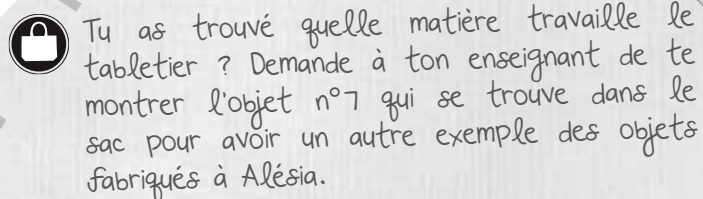 Tu as trouvé quelle matière travaille le
tabletier ? Demande à ton enseignant de te
montrer l'objet n°7 qui se trouve dans le
sac pour avoir un autre exemple des objets
fabriqués à Alésia.